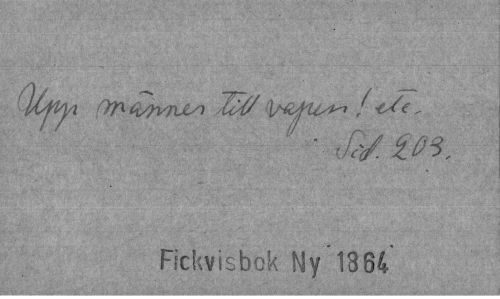 Upp männer till vapen! etc.
Sid. 203.
Fickvisbok Ny 1864